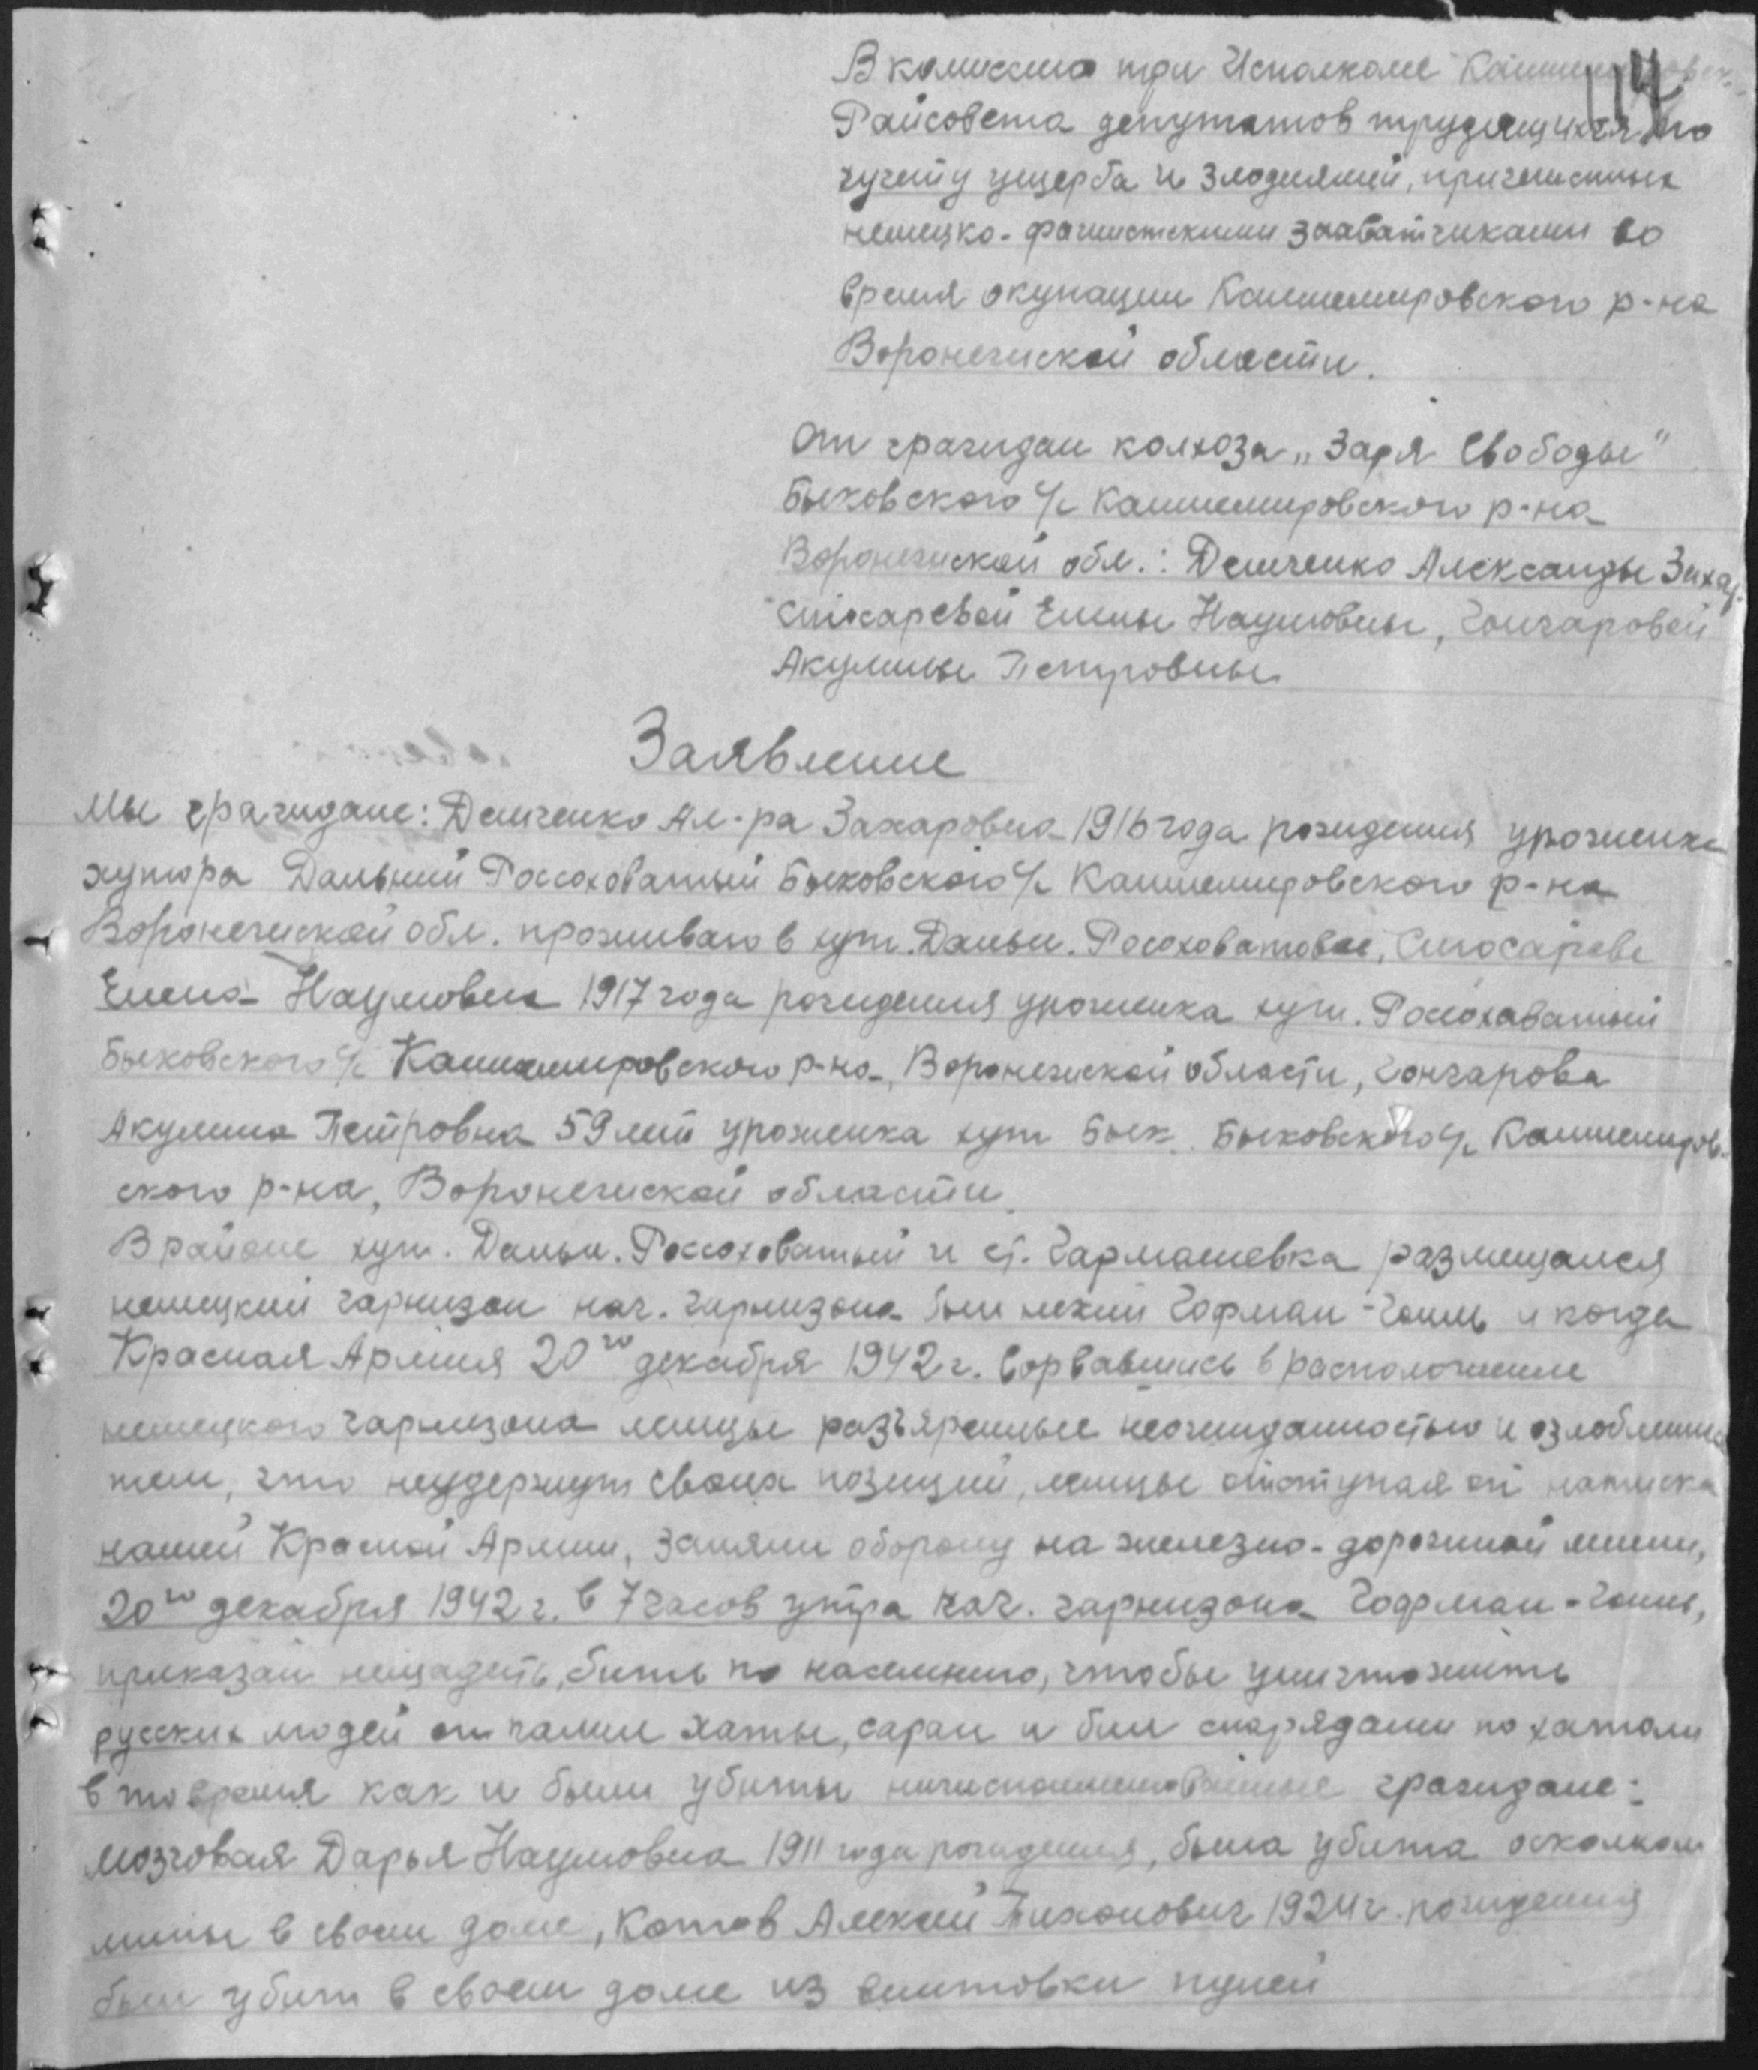 114
В комиссию при Исполкоме Кашемировск.
Райсовета депутатов трудящихся по
учету ущерба и злодеяний, причиненных
немецко-фашистскими захватчиками во
время окупации Кашемировского р-на
Воронежской области.
От граждан колхоза „Заря Свободы"
Быковского с/с Кашемировского р-на
Воронежской обл.: Демченко Александры Захар.
Слюсаревой Елены Наумовны, Гончаровой
Акулины Петровны
Заявление
Мы граждане: Демченко Ал-ра Захаровна 1916 года рождения уроженка
хутора Дальний Россоховатый Быковского с/с Кашемировского р-на
Воронежской обл. проживаю в хут. Дальн. Росоховатовое, Слюсарева
Елена Наумовна 1917 года рождения уроженка хут. Россоховатый
Быковского с/с Кашемировского р-на, Воронежской области, Гончарова
Акулина Петровна 59 лет уроженка хут Бык. Быковского с/с Кашемиров-
ского р-на, Воронежской области.
В районе хут. Дальн. Россоховатый и ст. Гармашевка размещался
немецкий гарнизон нач. гарнизона был некий Гофман - и когда
Красная Армия 20го декабря 1942 г. ворвавшись в расположение
немецкого гарнизона немцы разъяренные неожиданностью и озлоблены
тем, что неудержут своих позиций, немцы отступая от натиска
нашей Красной Армии, заняли оборону на железно-дорожной линии,
20го декабря 1942 г. в 7 часов утра нач. гарнизона Гофман -
приказал нещадеть, бить по населению, чтобы уничтожить
русских людей они палили хаты, сараи и били снарядами по хатам
в то время как и были убиты нижеспоименованные граждане:
Мозговая Дарья Наумовна 1911 года рождения, была убита осколком
мины в своем доме, Котов Алексей Тихонович 1924 г. рождения
был убит в своем доме из винтовки пулей